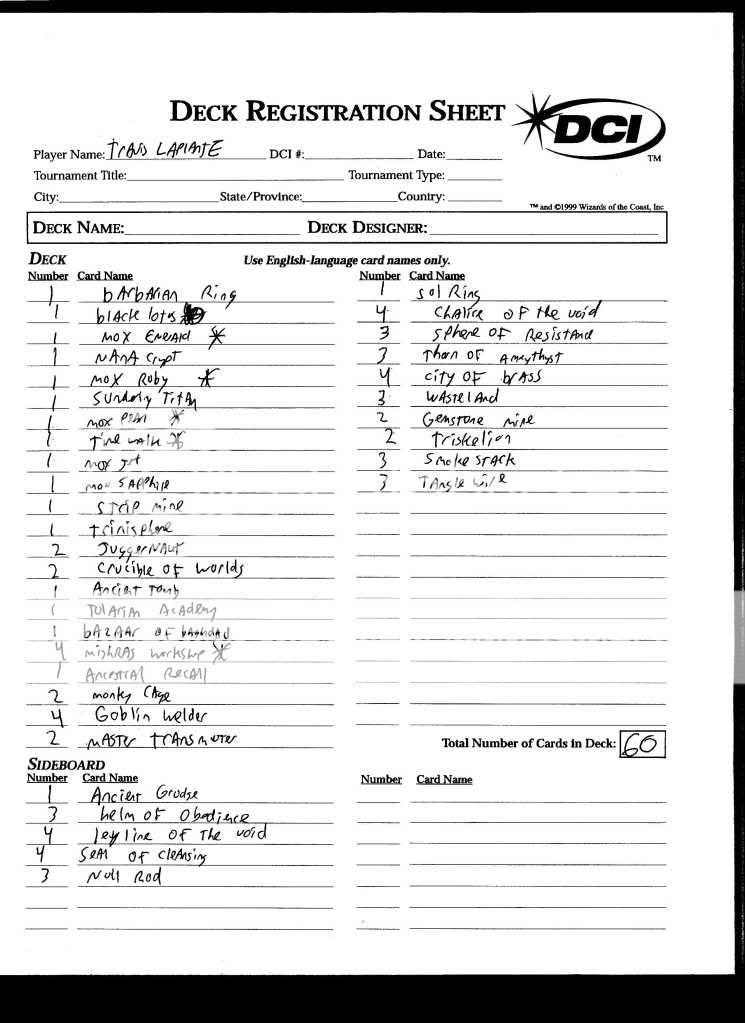 DECK REGISTRATION SHEET
DCI
TM
Player Name: TRAVIS LAPLANTE DCI #: Date:
Tournament Title: Tournament Type:
City: State/Province: Country:
™ and ©1999 Wizards of the Coast, Inc
DECK NAME: DECK DESIGNER:
DECK Use English-language card names only.
Number Card Name
1 bArbAriAn Ring
1 blAck lotus
1 mox Emerald *
1 mAnA Crypt
1 mox Roby *
1 Sundary TitAn
1 mox perl *
1 time walk *
1 mox jet
1 mox SAPPhire
1 STrip mine
1 trinisphere
2 JuggerNAut
2 Crucible of worlds
1 Ancient Tomb
1 TolAriAn AcAdemy
1 bAzAAr of baghdAd
4 mishRAs workshop *
1 AncestrAl RecAll
2 monky CAge
4 Goblin welder
2 mASTer trAnsmuter
Number Card Name
1 sol Ring
4 ChAlice of the void
3 Sphere of ResistAnce
3 Thorn of Ameythyst
4 city of brASS
3 wAstelAnd
2 Gemstone mine
2 Triskelion
3 Smoke STACK
3 TAngle wire
Total Number of Cards in Deck: 60
SIDEBOARD
Number Card Name
1 Ancient Grudge
3 helm of Obedience
4 leyline of The void
4 SeAl of cleAnsing
3 Null Rod
Number Card Name